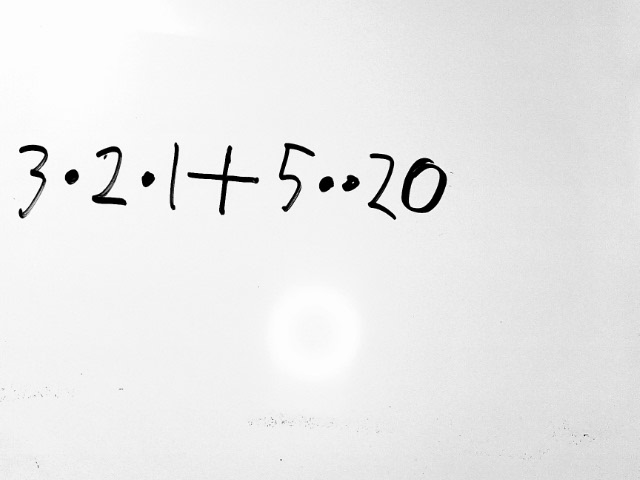 3·2·1+5··20